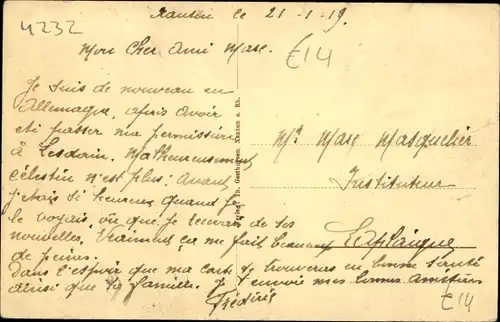 4232
Xanten le 21-1-19.
Mon Cher Ami Marc.
€14
Je suis de nouveau en
Allemagne, après avoir
été passer ma permission
à Lesdain. Malheureusement
Célestin n'est plus: Avant
j'étais si heureux quand je
le voyais, où que je recevais de ses
nouvelles. Vraiment ça me fait beaucoup
de peines.
Dans l'espoir que ma carte te trouveras en bonne santé
ainsi que ta famille. Je t'envoie mes bonnes amitiés
Frédéric
Mr Marc Masquelier
Instituteur
Xanten a. Rh.
€14